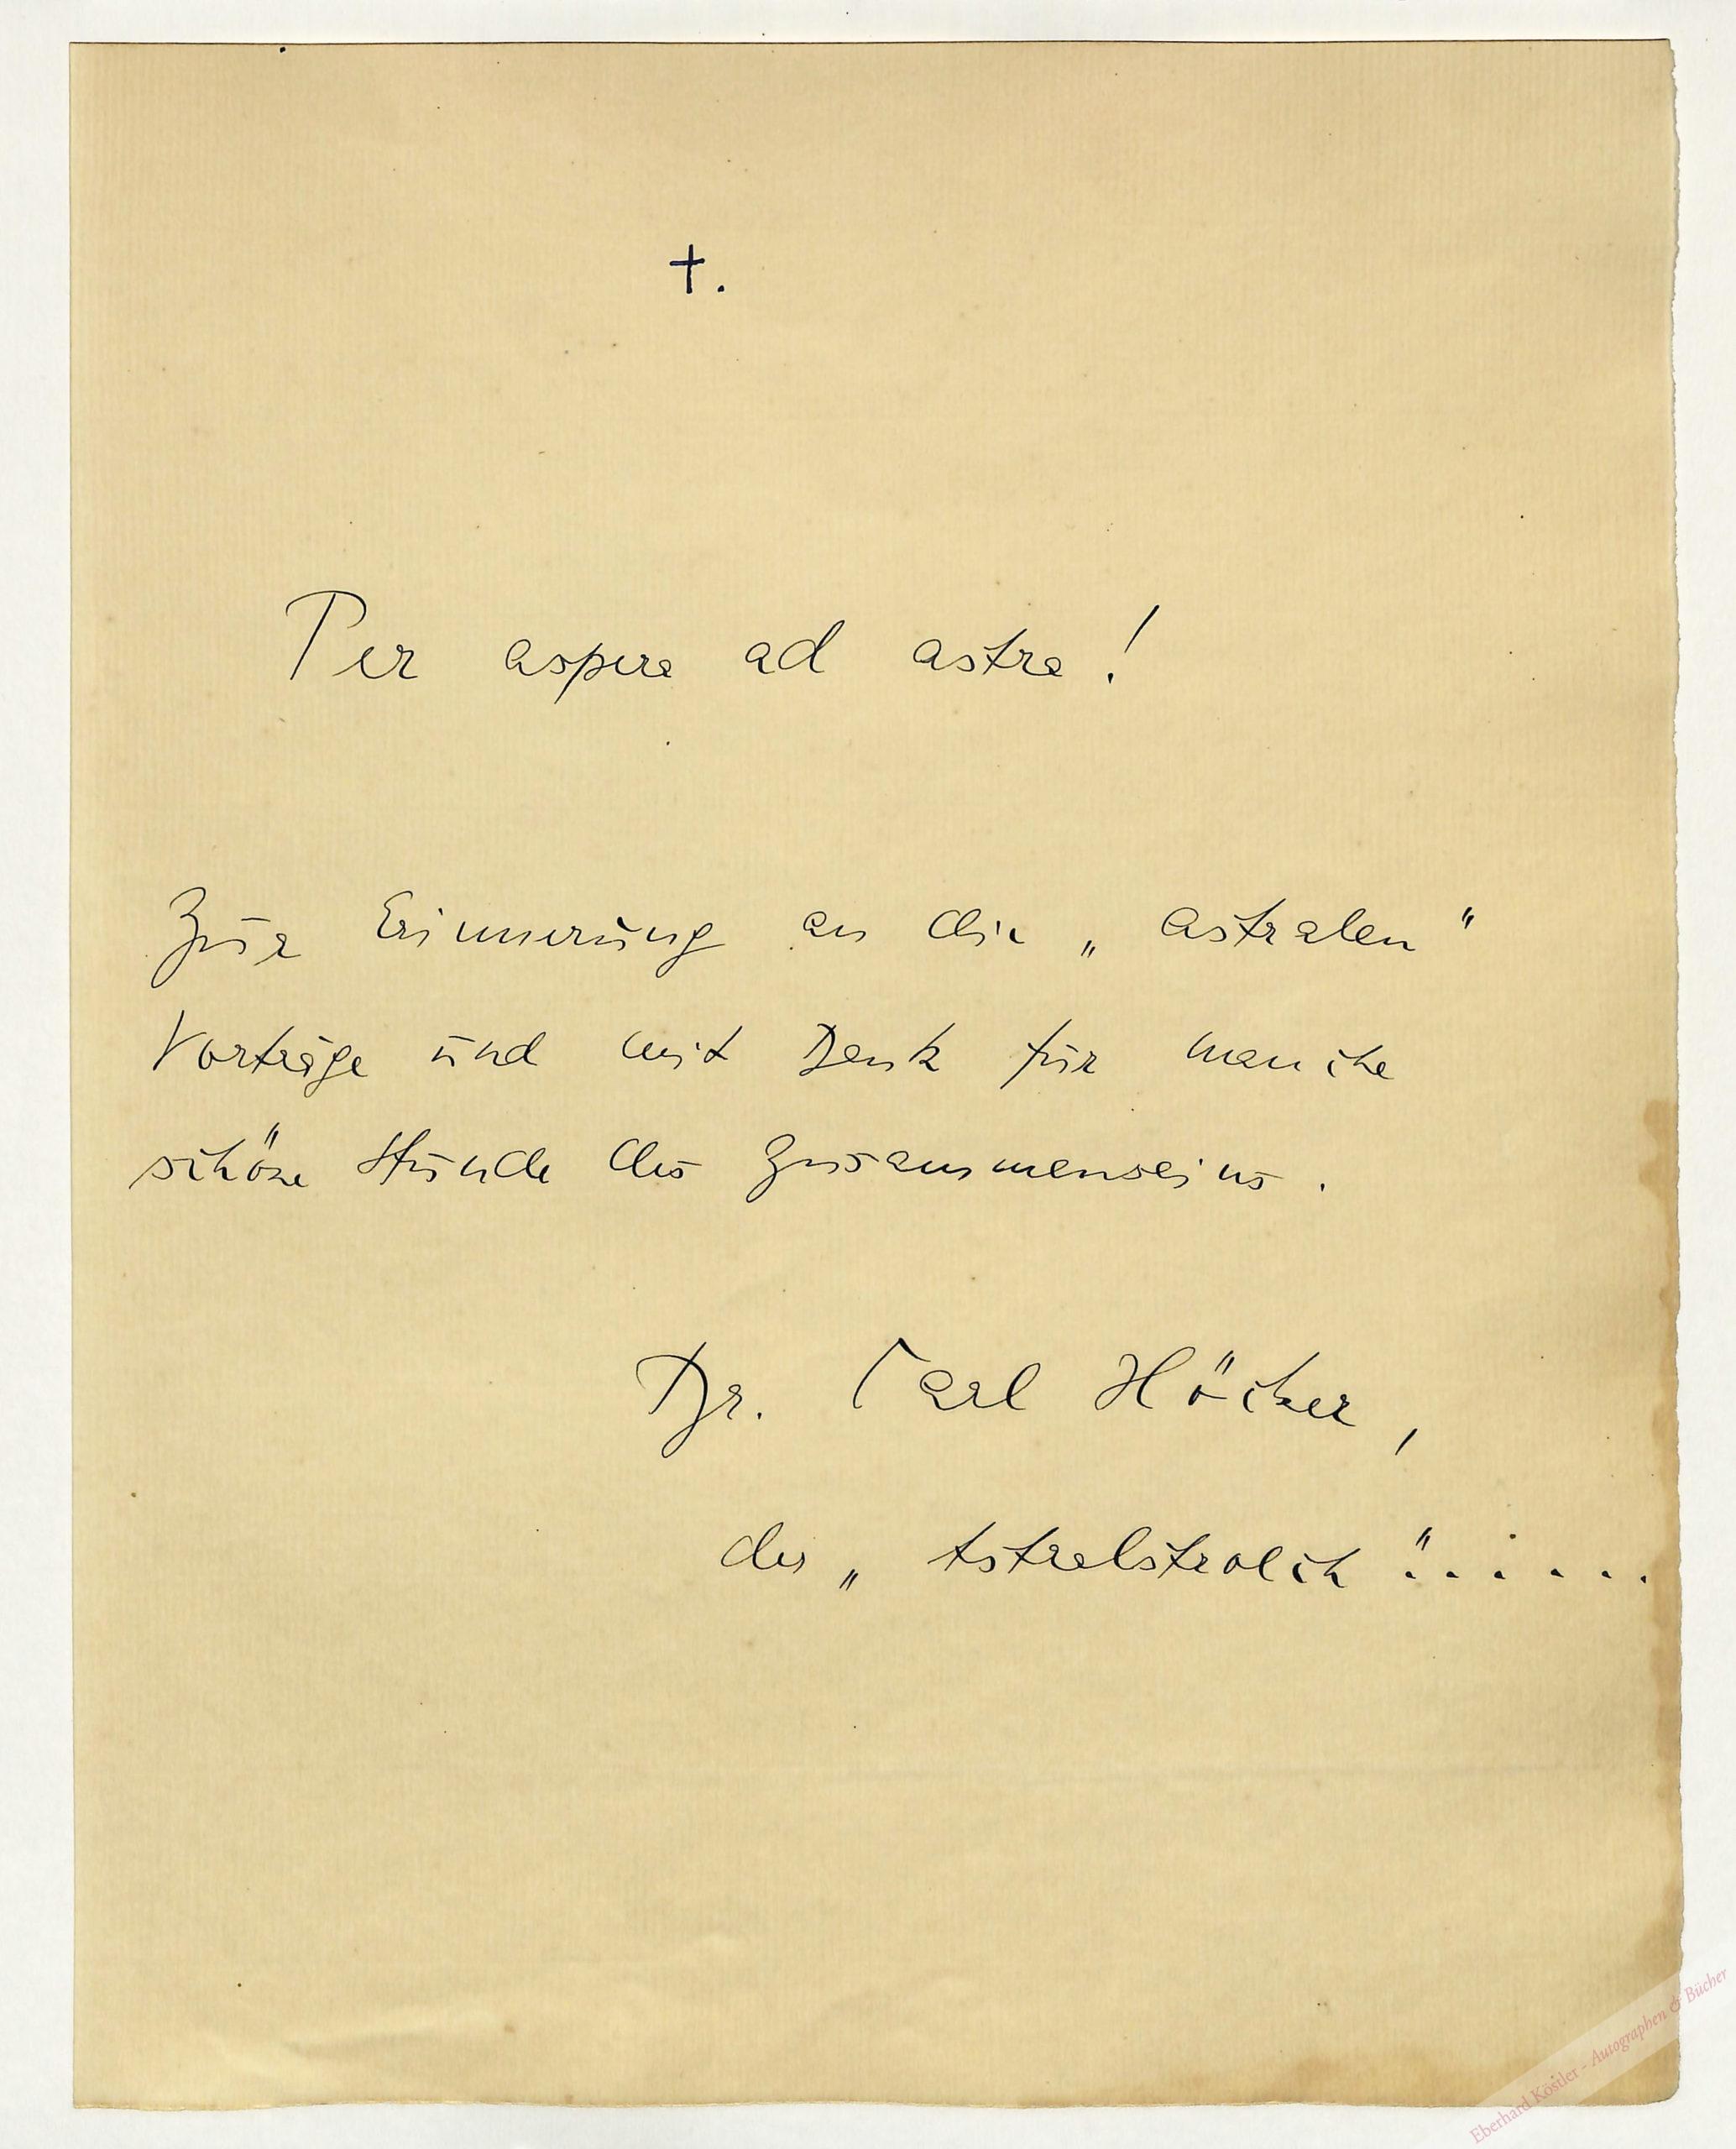 †.
Per aspera ad astra!
Zur Erinnerung an die „astralen“
Vorträge und mit Dank für manche
schöne Stunde des Zusammenseins.
Dr. Carl Höcker,
der „Astralstrolch“......
Eberhard Köstler - Autographen & Bücher